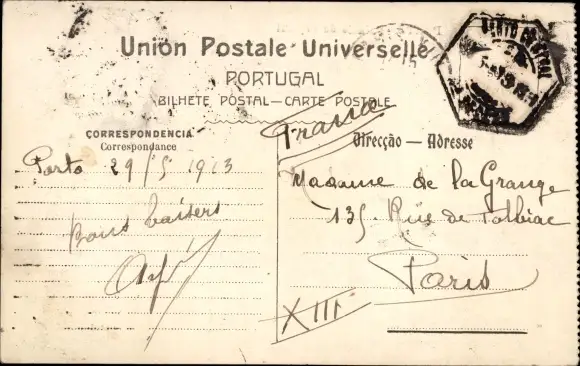 Union Postale Universelle
PORTUGAL
BILHETE POSTAL—CARTE POSTALE
France
CORRESPONDENCIA
Correspondance
Direcção — Adresse
Porto 29/5 1913
Bons baisers
Madame de la Grange
135 Rue de Tolbiac
Paris
XIII